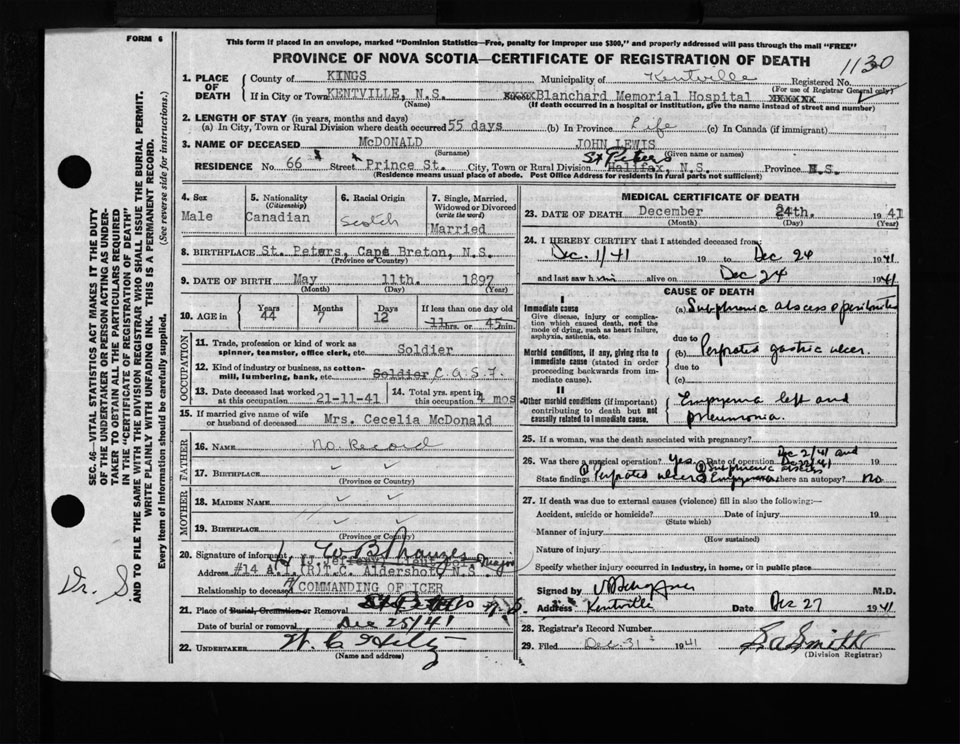 FORM 6
This form if placed in an envelope, marked "Dominion Statistics—Free, penalty for improper use $300," and properly addressed will pass through the mail "FREE"
PROVINCE OF NOVA SCOTIA—CERTIFICATE OF REGISTRATION OF DEATH
1130
1. PLACE OF DEATH County of KINGS Municipality of Kentville Registered No.
(For use of Registrar General only)
If in City or Town KENTVILLE, N.S. Blanchard Memorial Hospital
(Name) (If death occurred in a hospital or institution, give the name instead of street and number)
2. LENGTH OF STAY (in years, months and days)
(a) In City, Town or Rural Division where death occurred 55 days (b) In Province Life (c) In Canada (if immigrant)
3. NAME OF DECEASED McDONALD JOHN LEWIS
(Surname) (Given name or names)
St Peters
RESIDENCE No. 66 Street Prince St. City, Town or Rural Division Halifax, N.S. Province N.S.
(Residence means usual place of abode. Post Office Address for residents in rural parts not sufficient)
4. Sex Male
5. Nationality (Citizenship) Canadian
6. Racial Origin Scotch
7. Single, Married, Widowed or Divorced (write the word) Married
8. BIRTHPLACE St. Peters, Cape Breton, N.S.
(Province or Country)
9. DATE OF BIRTH May 11th. 1897
(Month) (Day) (Year)
10. AGE in Years 44 Months 7 Days 12 If less than one day old 11 hrs. or 45 min.
OCCUPATION
11. Trade, profession or kind of work as spinner, teamster, office clerk, etc. Soldier
12. Kind of industry or business, as cotton-mill, lumbering, bank, etc. Soldier C.A.S.F.
13. Date deceased last worked at this occupation 21-11-41
14. Total yrs. spent in this occupation 4 mos
15. If married give name of wife or husband of deceased Mrs. Cecelia McDonald
FATHER
16. NAME No. Record
17. BIRTHPLACE
(Province or Country)
MOTHER
18. MAIDEN NAME
19. BIRTHPLACE
(Province or Country)
20. Signature of informant Major
Address #14 A.I.(R)T.C. Aldershot, N.S.
Relationship to deceased COMMANDING OFICER
21. Place of Burial, Cremation or Removal St Peters N.S.
Date of burial or removal Dec 25/41
22. UNDERTAKER W. C. Hiltz
(Name and address)
MEDICAL CERTIFICATE OF DEATH
23. DATE OF DEATH December 24th. 1941
(Month) (Day) (Year)
24. I HEREBY CERTIFY that I attended deceased from
Dec. 1/41 19 to Dec 24 1941
and last saw him alive on Dec 24 1941
CAUSE OF DEATH
I
Immediate cause
Give disease, injury or complication which caused death, not the mode of dying, such as heart failure, asphyxia, asthenia, etc.
(a) Subphrenic abscess
due to
Morbid conditions, if any, giving rise to immediate cause (stated in order proceeding backwards from immediate cause).
(b) Perforated gastric ulcer.
due to
(c)
II
Other morbid conditions (if important) contributing to death but not causally related to immediate cause.
Empyema left and pneumonia.
25. If a woman, was the death associated with pregnancy?
26. Was there a surgical operation? Yes Date of operation Dec 2/41 and Dec 22/41 19
State findings Perforated ulcer Subphrenic abscess Empyema Was there an autopsy? No
27. If death was due to external causes (violence) fill in also the following:—
Accident, suicide or homicide? Date of injury 19
(State which)
Manner of injury
(How sustained)
Nature of injury
Specify whether injury occurred in industry, in home, or in public place
Signed by M.D.
Address Kentville Date Dec 27 1941
28. Registrar's Record Number
29. Filed Dec. 31st 1941 Smith
(Division Registrar)
SEC. 46—VITAL STATISTICS ACT MAKES IT THE DUTY OF THE UNDERTAKER OR PERSON ACTING AS UNDERTAKER TO OBTAIN ALL THE PARTICULARS REQUIRED IN THE "CERTIFICATE OF REGISTRATION OF DEATH" AND TO FILE THE SAME WITH THE DIVISION REGISTRAR WHO SHALL ISSUE THE BURIAL PERMIT.
WRITE PLAINLY WITH UNFADING INK. THIS IS A PERMANENT RECORD.
Every item of information should be carefully supplied. (See reverse side for instructions.)
Dr. S